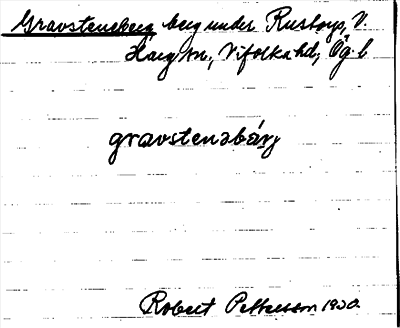 Gravstensberg, berg under Rustorp, V.
Harg sn., Vifolka hd, Ög. l
gravstensbärj
Robert Pettersson 1930.